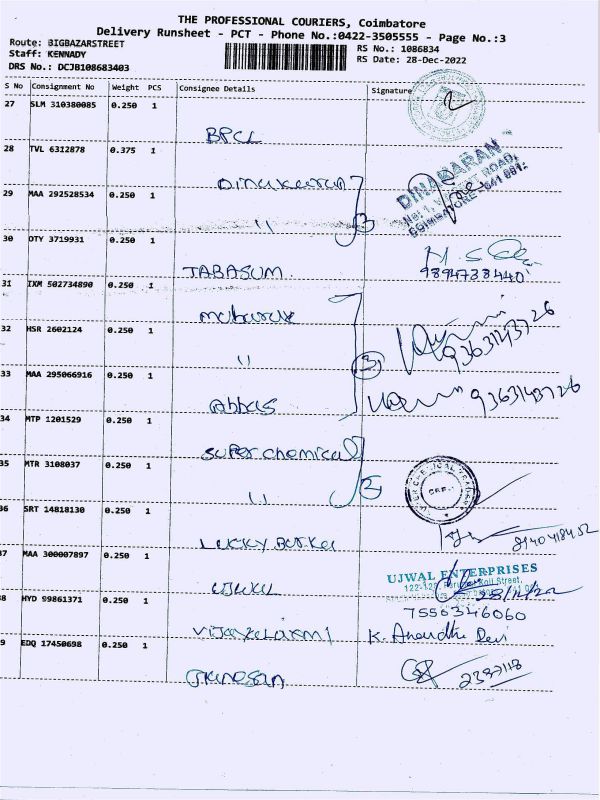 THE PROFESSIONAL COURIERS, Coimbatore
Delivery Runsheet - PCT - Phone No.:0422-3505555 - Page No.:3
Route: BIGBAZARSTREET
Staff: KENNADY
DRS No.: DCJB108683403
RS No.: 1086834
RS Date: 28-Dec-2022
S No Consignment No Weight PCS Consignee Details Signature
27 SLM 310380085 0.250 1
BPCL
28 TVL 6312878 0.375 1
Dinakaran
DINAKARAN
29 MAA 292528534 0.250 1
"
2
COIMBATORE - 641 001.
30 OTY 3719931 0.250 1
TABASUM
9894738440
31 IXM 502734890 0.250 1
mubarak
32 HSR 2602124 0.250 1
"
3
9363143726
33 MAA 295066916 0.250 1
Abbas
9363143726
34 MTP 1201529 0.250 1
super chemical
35 MTR 3108037 0.250 1
"
2
36 SRT 14818130 0.250 1
Lucky
37 MAA 300007897 0.250 1
UJWAL
UJWAL ENTERPRISES
28/12/22
38 HYD 99861371 0.250 1
7556346060
Vijayalaxmi K. Anandhi Devi
39 EDQ 17450698 0.250 1
2387118